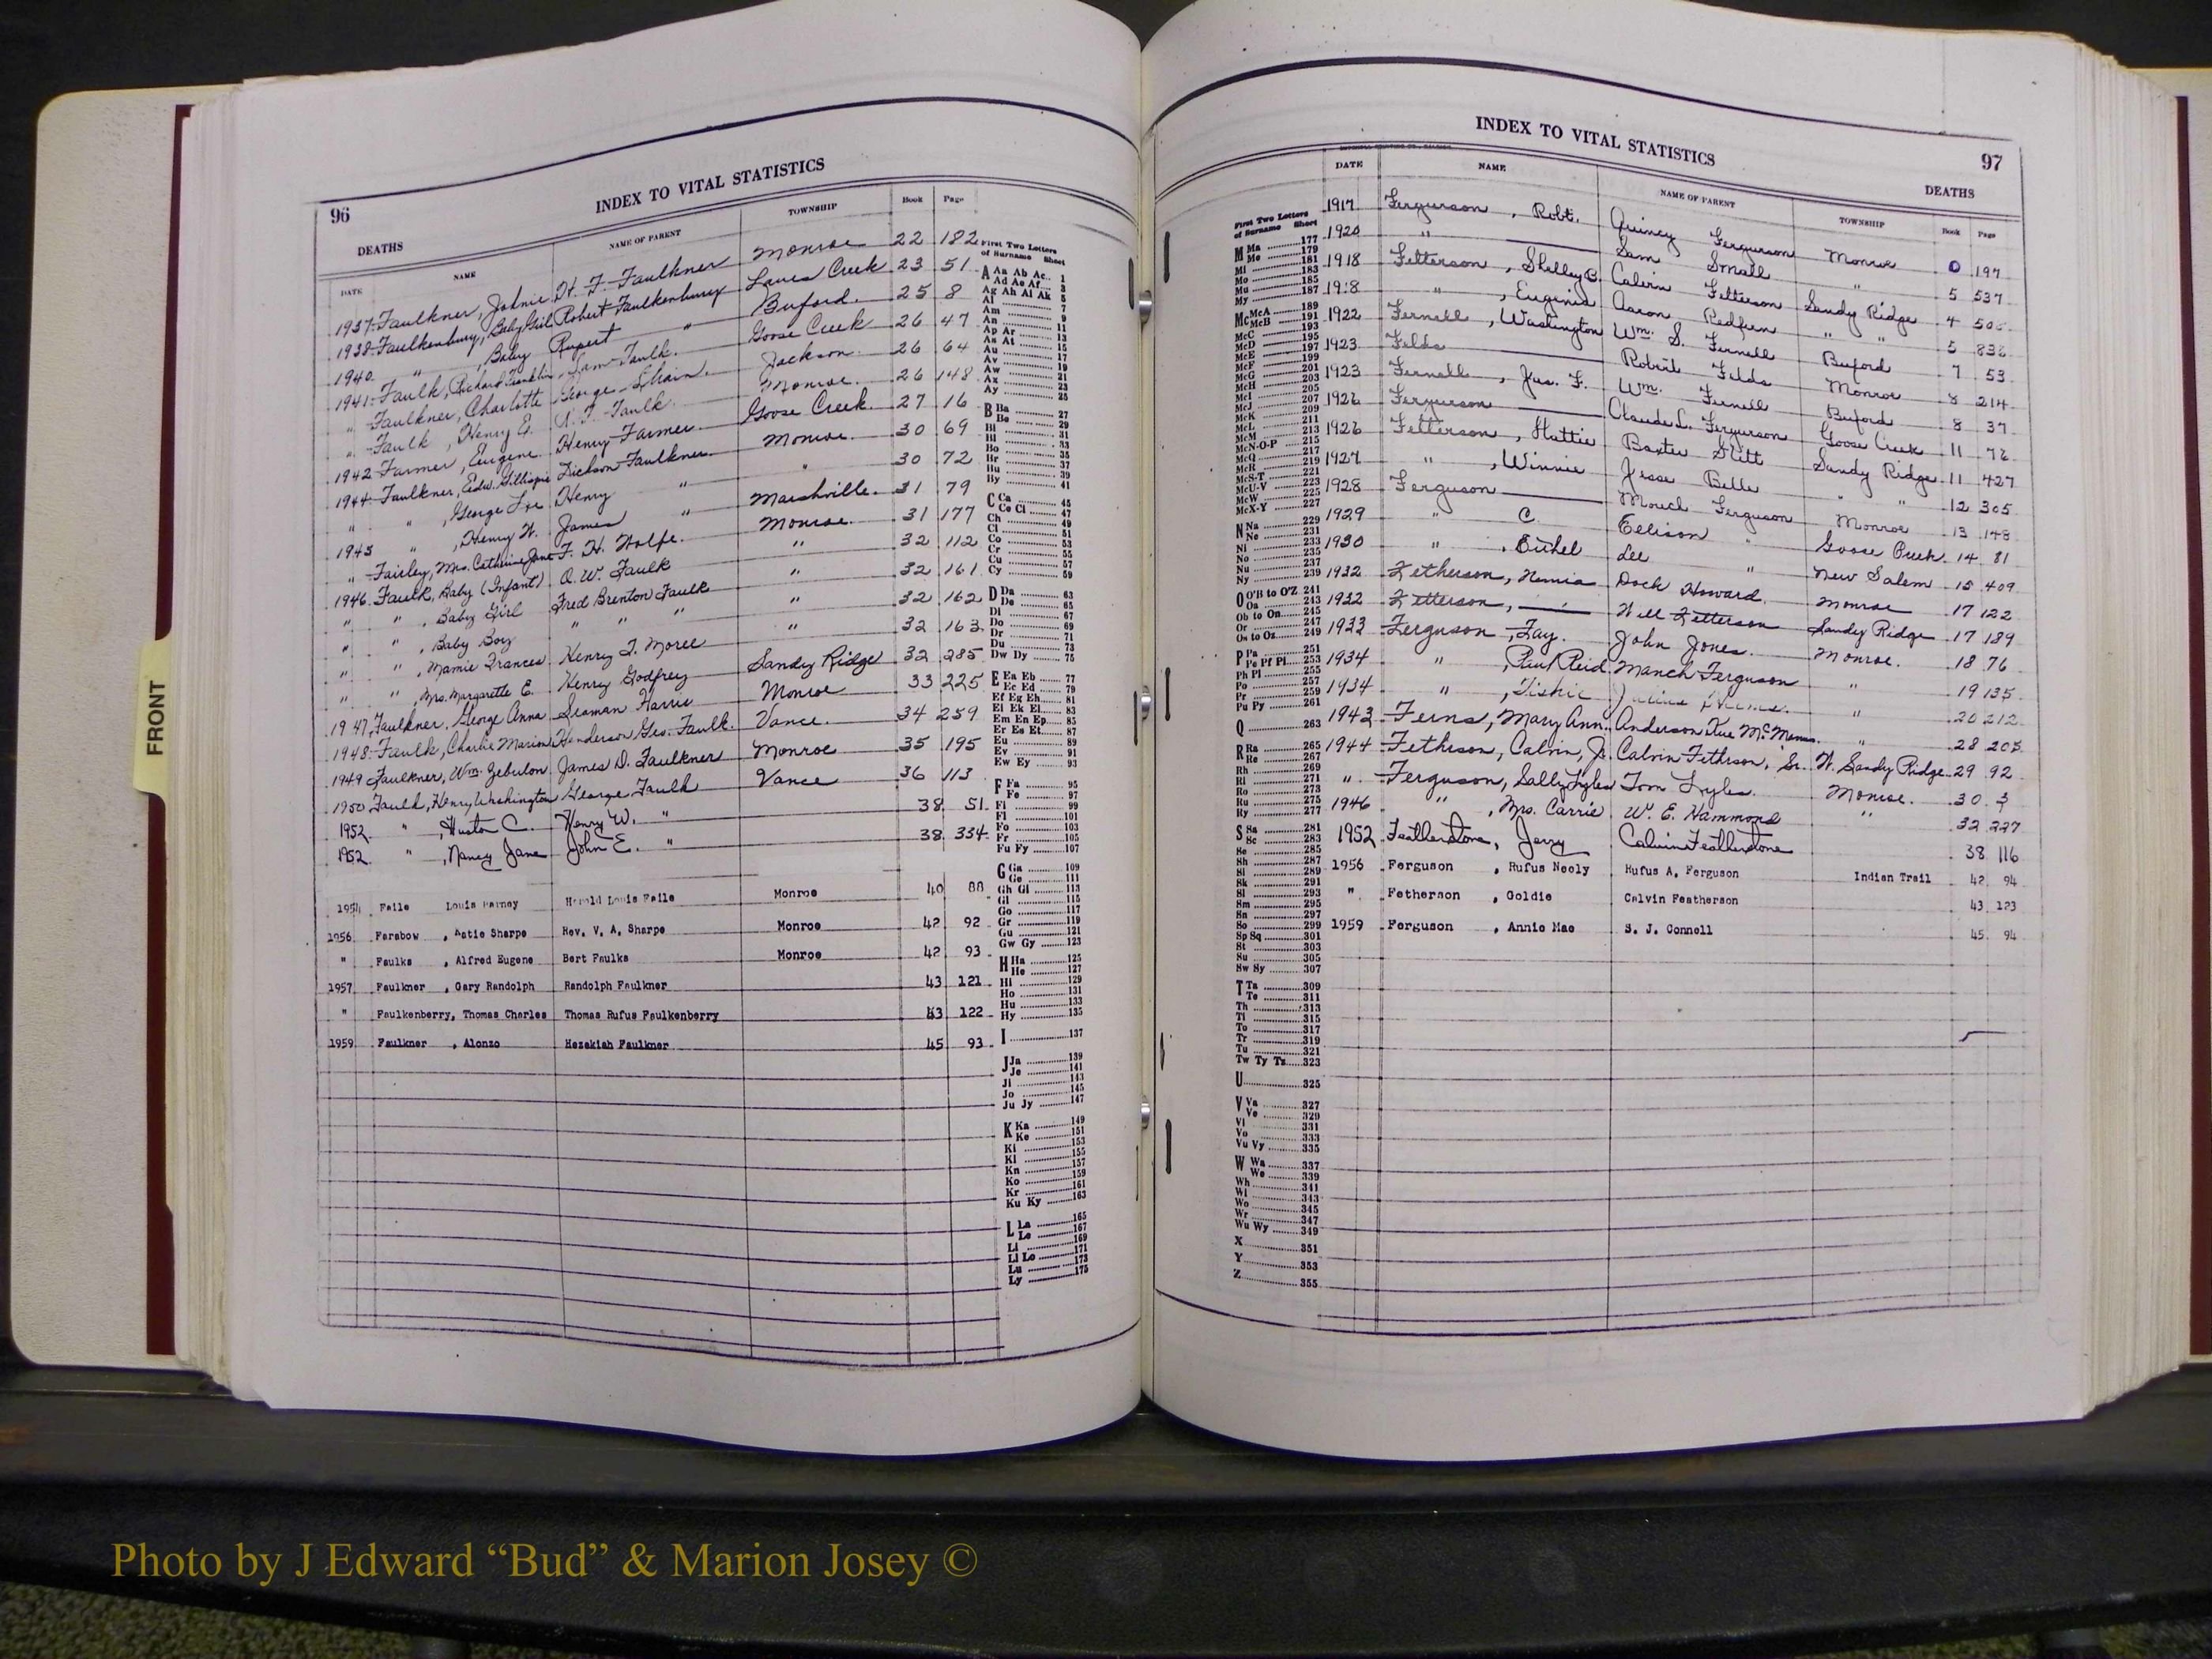 FRONT
96
INDEX TO VITAL STATISTICS
DEATHS
DATE NAME NAME OF PARENT TOWNSHIP Book Page
1937 Faulkner, Johnie H. F. Faulkner Monroe 22 182
1938 Faulkenbury, Baby Girl Robert Faulkenbury Lanes Creek 23 51
1940 " , Baby Rupert " Buford 25 8
1941 Faulk, Richard Franklin Sam Faulk Goose Creek 26 47
" Faulkner, Charlotte George Jackson 26 64
" Faulk, Henry E. Faulk Monroe 26 148
1942 Farmer, Eugene Henry Farmer Goose Creek 27 16
1944 Faulkner, Edw. Gillispie Dickson Faulkner Monroe 30 69
" " , George Lee Henry " " 30 72
1945 " , Henry W. James " Marshville 31 79
" Fairley, Mrs. Catherine Jane F. H. Wolfe Monroe 31 177
1946 Faulk, Baby (Infant) O. W. Faulk " 32 112
" " , Baby Girl Fred Brenton Faulk " 32 161
" " , Baby Boy " " " " 32 162
" " , Mamie Frances Henry T. Moree " 32 163
" " , Mrs. Margarette E. Henry Godfrey Sandy Ridge 32 285
1947 Faulkner, George Anna Seaman Harris Monroe 33 225
1948 Faulk, Charlie Marion Henderson Geo. Faulk Vance 34 259
1949 Faulkner, Wm. Zebulon James D. Faulkner Monroe 35 195
1950 Faulk, Henry Washington George Faulk Vance 36 113
1952 " , Huston C. Henry W. " 38 51
1952 " , Nancy Jane John E. " 38 334
1954 Faile Louis Harold Louis Faile Monroe 40 88
1956 Farabow , Katie Sharpe Rev. V. A. Sharpe Monroe 42 92
" Faulks , Alfred Eugene Bert Faulks Monroe 42 93
1957 Faulkner , Gary Randolph Randolph Faulkner 43 121
" Faulkenberry, Thomas Charles Thomas Rufus Faulkenberry 43 122
1959 Faulkner , Alonzo Hezekiah Faulkner 45 93
First Two Letters
of Surname Sheet
A Aa Ab Ac 1
Ad Ae Af 3
Ag Ah Ai Ak 5
Al 7
Am 9
An 11
Ap Ar 13
As At 15
Au 17
Av 19
Aw 21
Ax 23
Ay 25
B Ba 27
Be 29
Bi 31
Bl 33
Bo 35
Br 37
Bu 39
By 41
C Ca 45
Ce Ci 47
Ch 49
Cl 51
Co 53
Cr 55
Cu 57
Cy 59
D Da 63
De 65
Di 67
Do 69
Dr 71
Du 73
Dw Dy 75
E Ea Eb 77
Ec Ed 79
Ef Eg Eh 81
Ei Ek El 83
Em En Ep 85
Er Es Et 87
Eu 89
Ev 91
Ew Ey 93
F Fa 95
Fe 97
Fi 99
Fl 101
Fo 103
Fr 105
Fu Fy 107
G Ga 109
Ge 111
Gh Gi 113
Gl 115
Go 117
Gr 119
Gu 121
Gw Gy 123
H Ha 125
He 127
Hi 129
Ho 131
Hu 133
Hy 135
I 137
J Ja 139
Je 141
Ji 143
Jo 145
Ju Jy 147
K Ka 149
Ke 151
Ki 153
Kl 155
Kn 157
Ko 159
Kr 161
Ku Ky 163
L La 165
Le 167
Li 169
Ll Lo 171
Lu 173
Ly 175
INDEX TO VITAL STATISTICS
97
DEATHS
DATE NAME NAME OF PARENT TOWNSHIP Book Page
1917 Fergurson , Robt. Quincy Fergurson Monroe 0 197
1920 " Sam Small " 5 537
1918 Fetterson , Shelley B. Calvin Fetterson Sandy Ridge 4 506
1918 " , Eugenia Aaron Redfern " " 5 836
1922 Fernell , Washington Wm. S. Fernell Buford 7 53
1923 Felds Robert Felds Monroe 8 214
1923 Fernell , Jas. F. Wm. Fernell Buford 8 37
1926 Fergurson Claude L. Fergurson Goose Creek 11 76
1926 Fetterson , Hattie Baxter Stitt Sandy Ridge 11 427
1927 " , Winnie Jesse Belle " " 12 305
1928 Ferguson Ferguson Monroe 13 148
1929 " C. Ellison " Goose Creek 14 81
1930 " , Ethel Lee " New Salem 15 409
1932 Fetherson, Nemia Dock Howard Monroe 17 122
1932 Fetterson, Will Fetterson Sandy Ridge 17 189
1933 Ferguson , Fay. John Jones Monroe 18 76
1934 " , Paul Reid Manch Ferguson " 19 135
1934 " , Tishie Julius " 20 212
1943 Ferns, Mary Ann Anderson Kue " 28 205
1944 Fethrson, Calvin, Jr. Calvin Fethrson, Sr. W. Sandy Ridge 29 92
" Ferguson, Sally Lyles Tom Lyles Monroe 30 3
1946 " , Mrs. Carrie W. E. Hammond " 32 227
1952 Featherstone, Jerry Calvin Featherstone 38 116
1956 Ferguson , Rufus Neely Rufus A. Ferguson Indian Trail 42 94
" Fetherson , Goldie Calvin Featherson 43 123
1959 Ferguson , Annie Mae S. J. Connell 45 94
First Two Letters
of Surname Sheet
M Ma 177
Me 179
Mi 181
Mo 183
Mu 185
My 187
Mc McA 189
McB 191
McC 193
McD 195
McE 197
McF 199
McG 201
McH 203
McI 205
McJ 207
McK 209
McL 211
McM 213
McN-O-P 215
McQ 217
McR 219
McS-T 221
McU-V 223
McW 225
McX-Y 227
N Na 229
Ne 231
Ni 233
No 235
Nu 237
Ny 239
O O'B to O'Z 241
Oa 243
Ob to On 245
Or 247
Os to Oz 249
P Pa 251
Pe Pf Pi 253
Ph Pl 255
Po 257
Pr 259
Pu Py 261
Q 263
R Ra 265
Re 267
Rh 269
Ri 271
Ro 273
Ru 275
Ry 277
S Sa 281
Sc 283
Se 285
Sh 287
Si 289
Sk 291
Sl 293
Sm 295
Sn 297
So 299
Sp Sq 301
St 303
Su 305
Sw Sy 307
T Ta 309
Te 311
Th 313
Ti 315
To 317
Tr 319
Tu 321
Tw Ty Tz 323
U 325
V Va 327
Ve 329
Vi 331
Vo 333
Vu Vy 335
W Wa 337
We 339
Wh 341
Wi 343
Wo 345
Wr 347
Wu Wy 349
X 351
Y 353
Z 355
Photo by J Edward “Bud” & Marion Josey ©